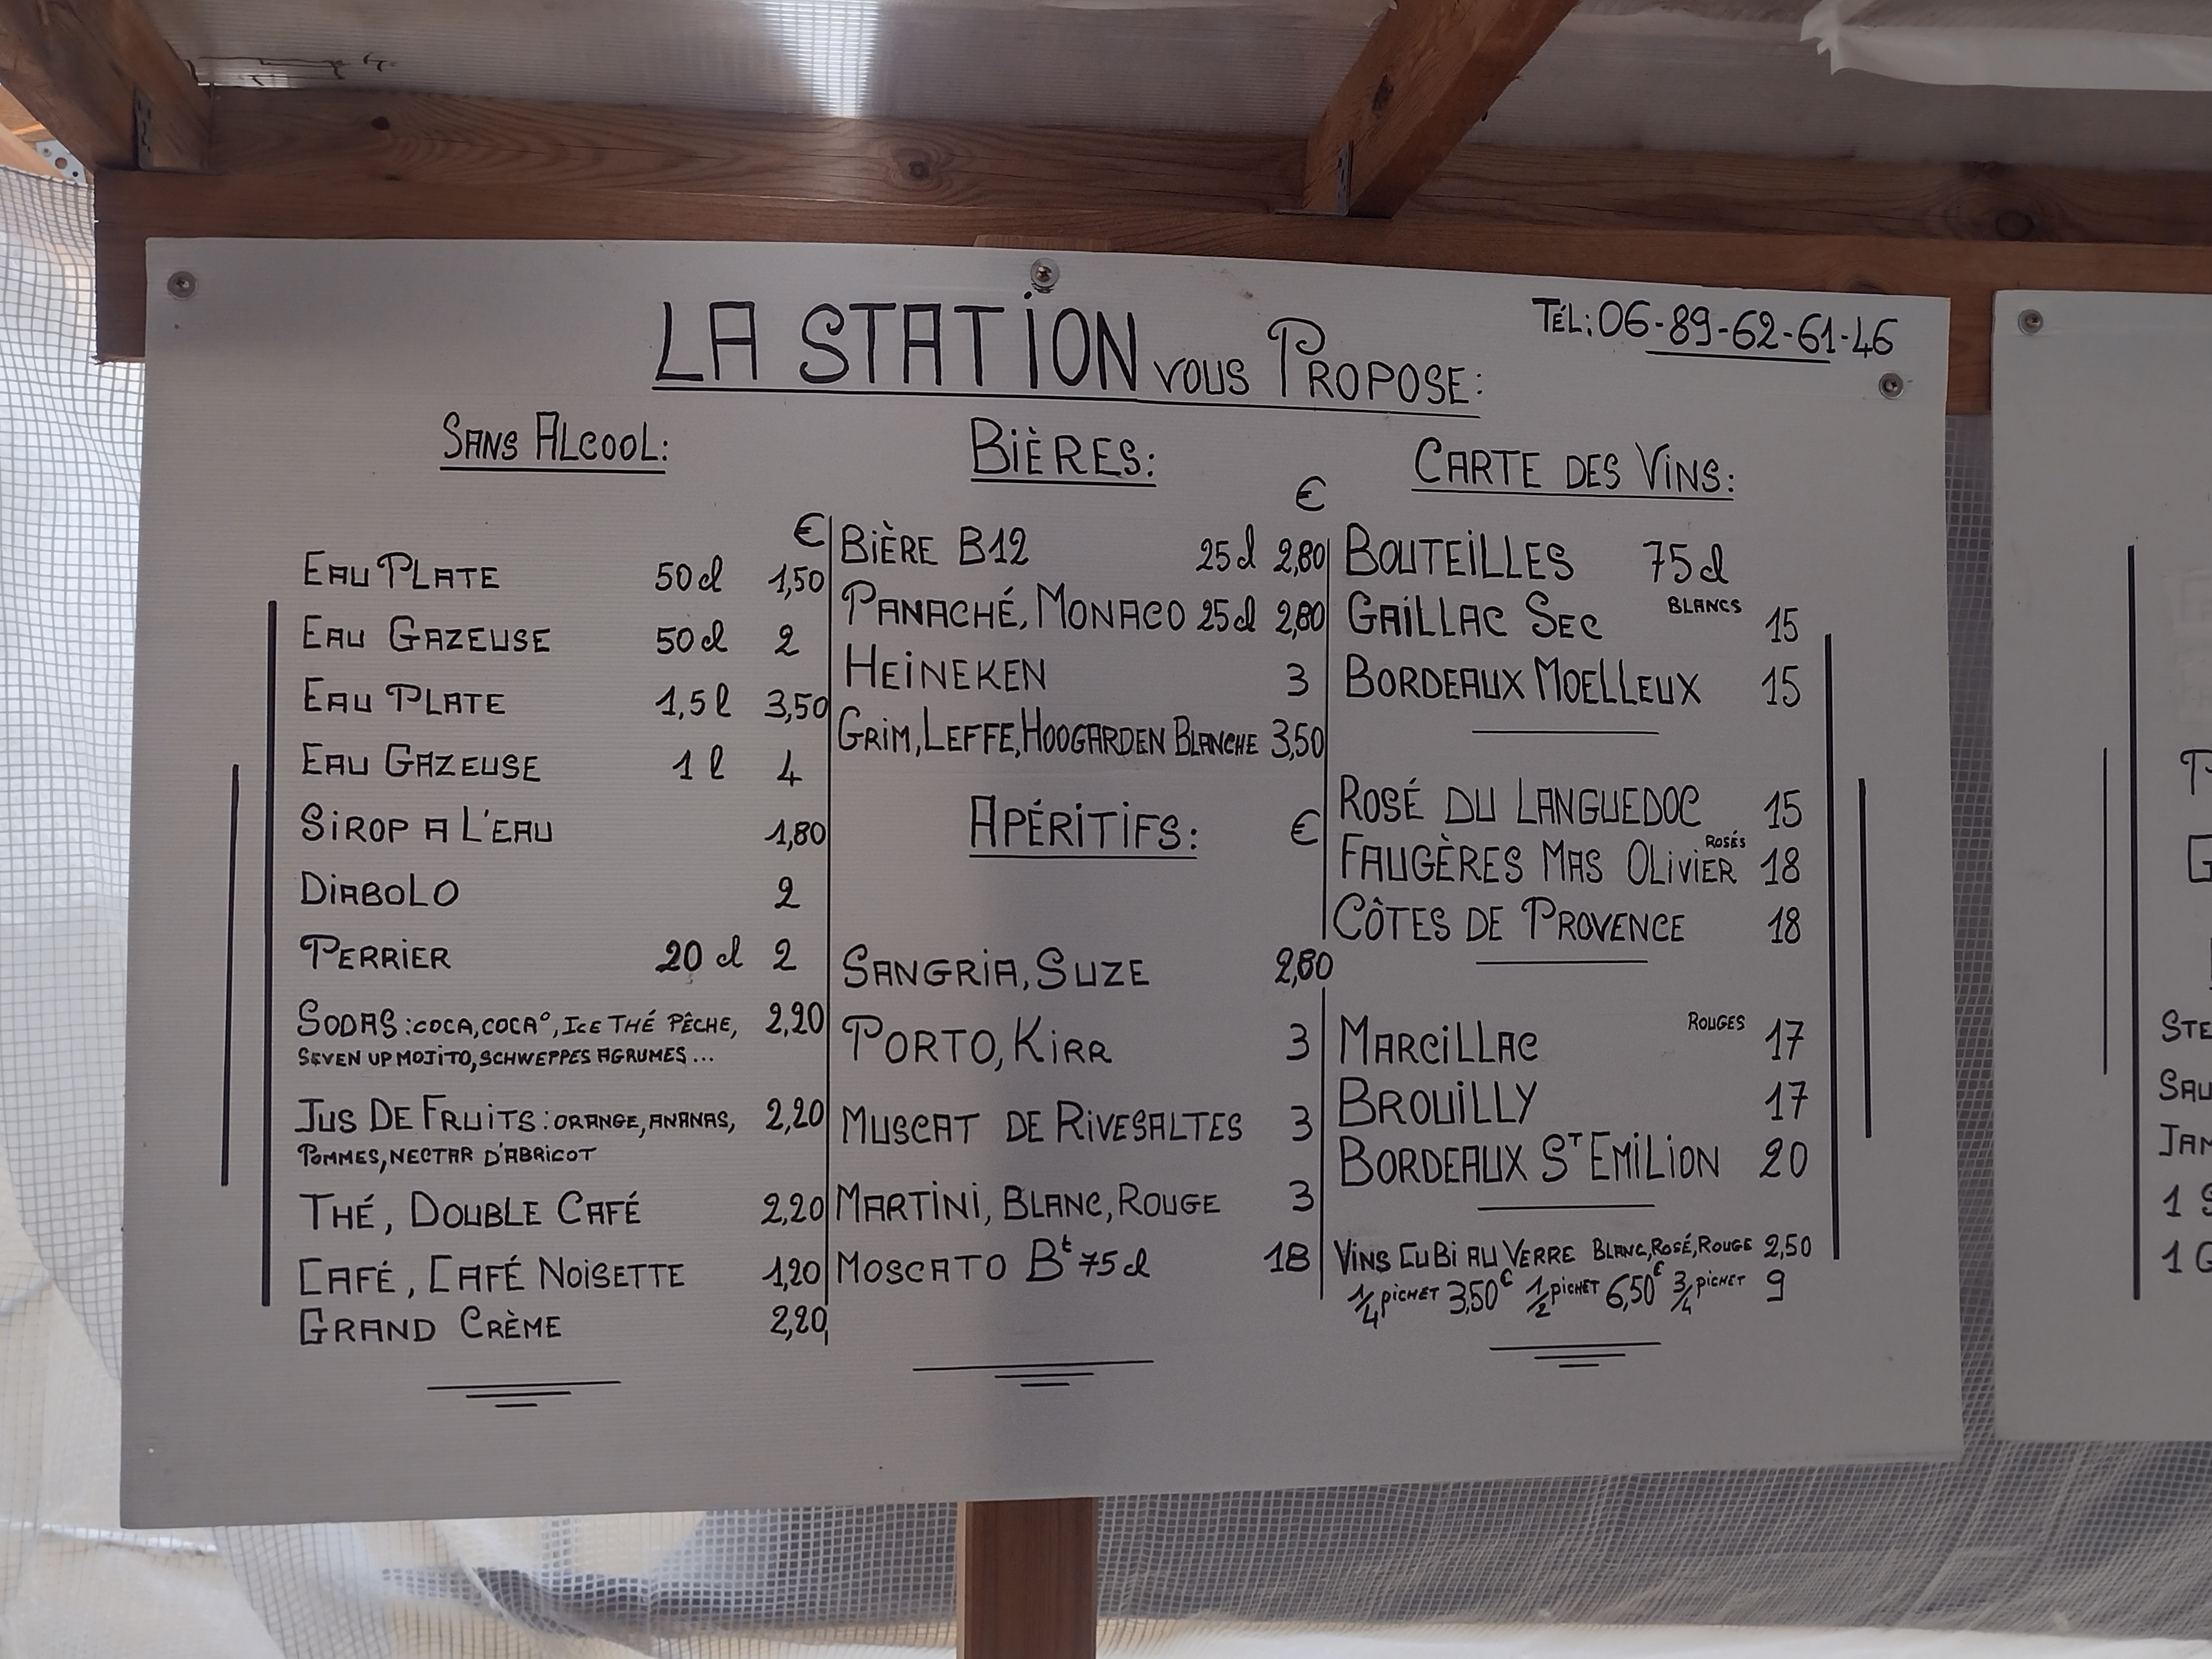 LA STATION VOUS PROPOSE:
TÉL: 06-89-62-61-46
SANS ALCOOL:
€
EAU PLATE 50cl 1,50
EAU GAZEUSE 50cl 2
EAU PLATE 1,5l 3,50
EAU GAZEUSE 1l 4
SIROP A L'EAU 1,80
DIABOLO 2
PERRIER 20 cl 2
SODAS: COCA, COCA°, ICE THÉ PÊCHE, 2,20
SEVEN UP MOJITO, SCHWEPPES AGRUMES...
JUS DE FRUITS: ORANGE, ANANAS, 2,20
POMMES, NECTAR D'ABRICOT
THÉ, DOUBLE CAFÉ 2,20
CAFÉ, CAFÉ NOISETTE 1,20
GRAND CRÈME 2,20
BIÈRES:
€
BIÈRE B12 25cl 2,80
PANACHÉ, MONACO 25cl 2,80
HEINEKEN 3
GRIM, LEFFE, HOOGARDEN BLANCHE 3,50
APÉRITIFS: €
SANGRIA, SUZE 2,80
PORTO, KIRR 3
MUSCAT DE RIVESALTES 3
MARTINI, BLANC, ROUGE 3
MOSCATO Bt 75cl 18
CARTE DES VINS:
BOUTEILLES 75cl
BLANCS
GAILLAC SEC 15
BORDEAUX MOELLEUX 15
ROSÉ DU LANGUEDOC 15
ROSÉS
FAUGÈRES MAS OLIVIER 18
CÔTES DE PROVENCE 18
ROUGES
MARCILLAC 17
BROUILLY 17
BORDEAUX ST EMILION 20
VINS CUBI AU VERRE BLANC, ROSÉ, ROUGE 2,50
1/4 PICHET 3,50€ 1/2 PICHET 6,50€ 3/4 PICHET 9
STE
SAU
JAM
1 S
1 G